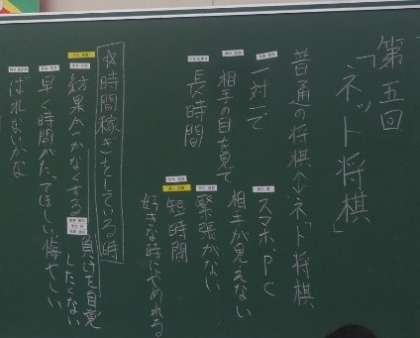 第五回
「ネット将棋」
普通の将棋↔ネット将棋
一対一で
スマホ、PC
相手の目を見て
相手が見えない
緊張がない
長時間
短時間
好きな時にやめれる
☆時間稼ぎをしている時
結果が分かなくする
負けを自覚
したくない
早く時間がたってほしい 悔やしい
はれないかな